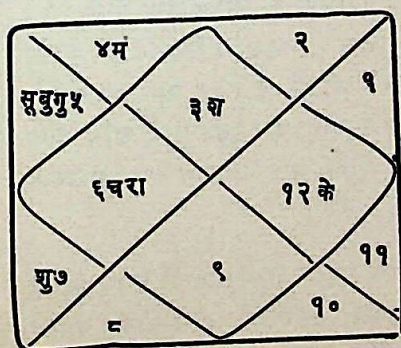 ४मं २
सूबुगु५ ३श १
६चरा १२के
शु७ ९ ११
८ १०